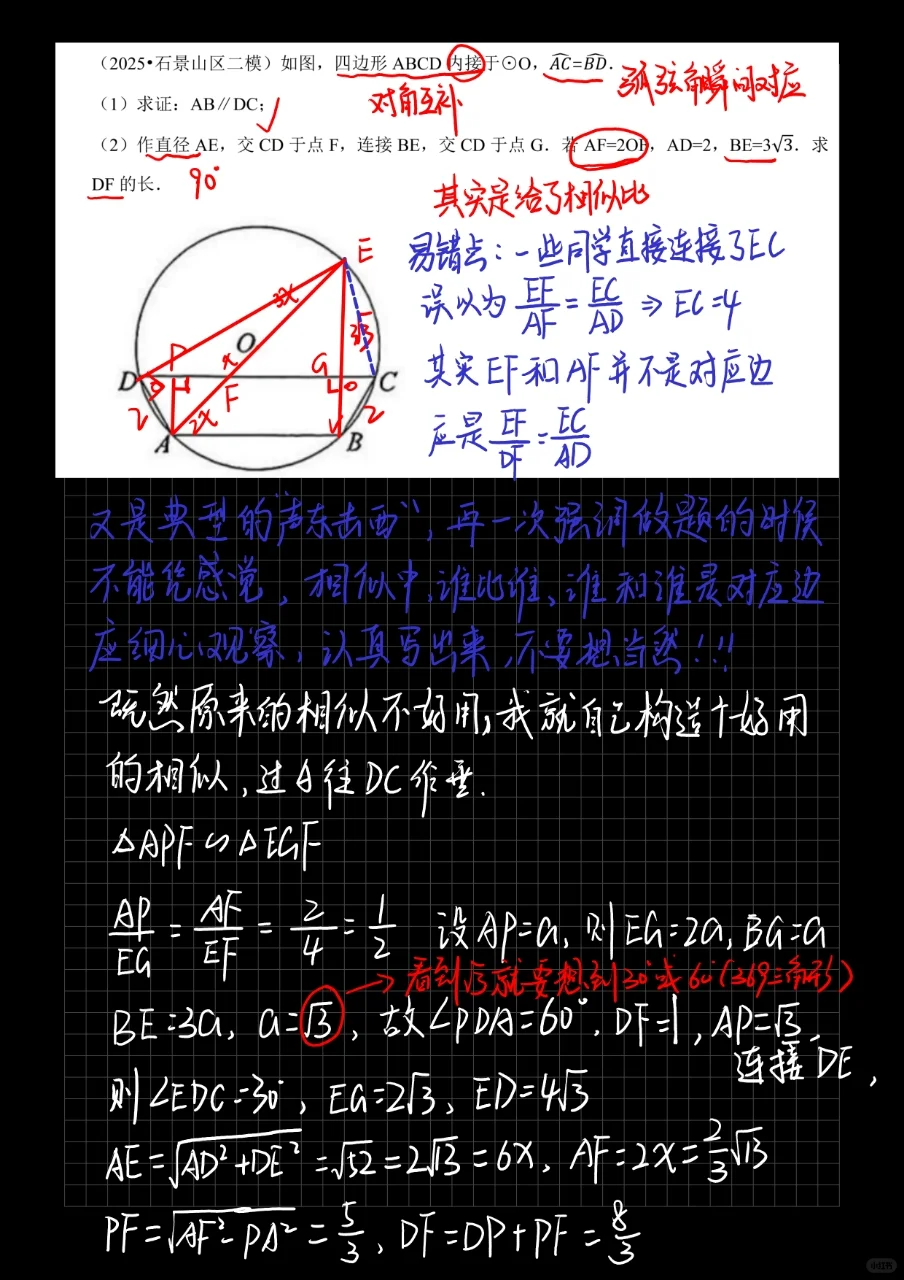 (2025•石景山区二模)如图,四边形 ABCD 内接于⊙O,AC=BD.
弧弦角瞬间对应
(1)求证:AB∥DC;
对角互补
(2)作直径 AE,交 CD 于点 F,连接 BE,交 CD 于点 G.若 AF=2OF,AD=2,BE=3√3.求
DF 的长.
90°
其实是给了相似比
易错点:一些同学直接连接了EC
误以为 EF/AF = EC/AD ⇒ EC=4
其实EF和AF并不是对应边
应是 EF/DF = EC/AD
E
3x
3√3
O
P
x
G
D
F
C
2
2x
2
A
B
又是典型的"声东击西",再一次强调做题的时候
不能凭感觉,相似中,谁比谁、谁和谁是对应边
应细心观察,认真写出来,不要想当然!!!
既然原来的相似不好用,我就自己构造个好用
的相似,过A往DC作垂.
△APF∽△EGF
AP/EG = AF/EF = 2/4 = 1/2 设AP=a,则EG=2a,BG=a
→看到√3就要想到30°或60°(369三角形)
BE=3a,a=√3,故∠PDA=60°.DF=1,AP=√3.
连接DE,
则∠EDC=30°,EG=2√3,ED=4√3
AE=√AD²+DE²=√52=2√13=6x,AF=2x=2/3√13
PF=√AF²-PA²=5/3,DF=DP+PF=8/3
小红书